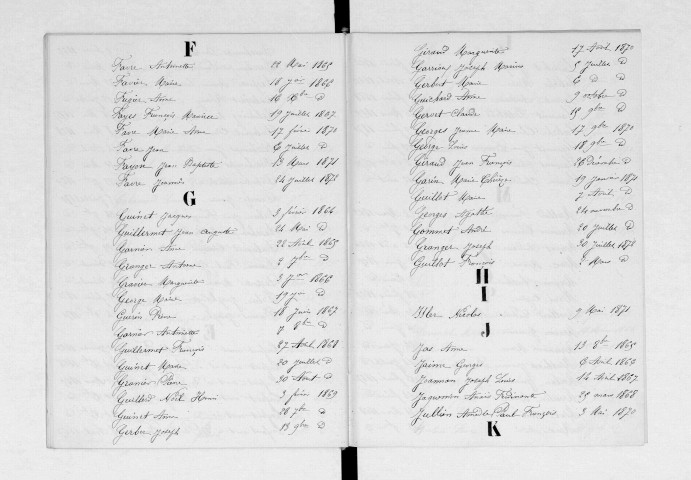 F
Favre Antoinette 22 Mai 1865
Favier Marie 18 juin 1866
Anne D
Fayet François Maurice 19 Juillet 1867
Favre Marie Anne 17 février 1870
Favre Jean 6 Juillet D
Fayon Jean Baptiste 13 Mars 1871
Favre Jeanne 24 Juillet 1873
G
Guinet Jacques 3 février 1864
Guillermet Jean Auguste 24 Mai D
Garnier Anne 22 Avril 1865
Granger Antoine 2 D
Gravier Marguerite 3 1866
George Marie 19 D
Guérin Pierre 18 Juin 1867
Garnier Antoinette 7 8bre D
Guillermet François 27 Avril 1868
Guinet Marie 20 juillet D
Granier Pierre 30 Août D
Guillard Noël Henri 3 février 1869
Guinet Anne 26 D
Gerbe Joseph 13 9bre D
Giraud Marguerite 17 Avril 1870
Garriou Joseph Marius 5 Juillet D
Gerbut Marie 6 D D
Guichard Anne 9 octobre D
Gervet Claude 15 9bre D
Georges Jeanne Marie 17 9bre 1870
George Louis 18 9bre D
Géraud Jean François 26 Décembre D
Garin Marie Thérèse 19 Janvier 1871
Guillet Marie 7 Avril D
Georges Agathe 24 novembre D
Gommet André 20 juillet D
Granger Joseph 30 Juillet 1873
Guillot François 2 Mars D
H
I
Isler Nicolas 9 Mai 1871
J
Jas Anne 13 8bre 1865
Jaime Georges 6 Avril 1869
Jeannon Joseph Louis 14 Avril 1867
Jaquemin Ferdinand 25 mars 1868
Jullien Amédée Paul François 3 Mai 1870
K